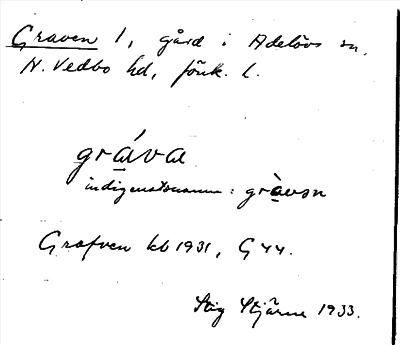 Graven 1, gård i Adelövs sn,
N. Vedbo hd, Jönk. l.
gráva
indigenatsnamn: gràvsn
Grafven kb 1931, G 44.
Stig Stjärne 1933.